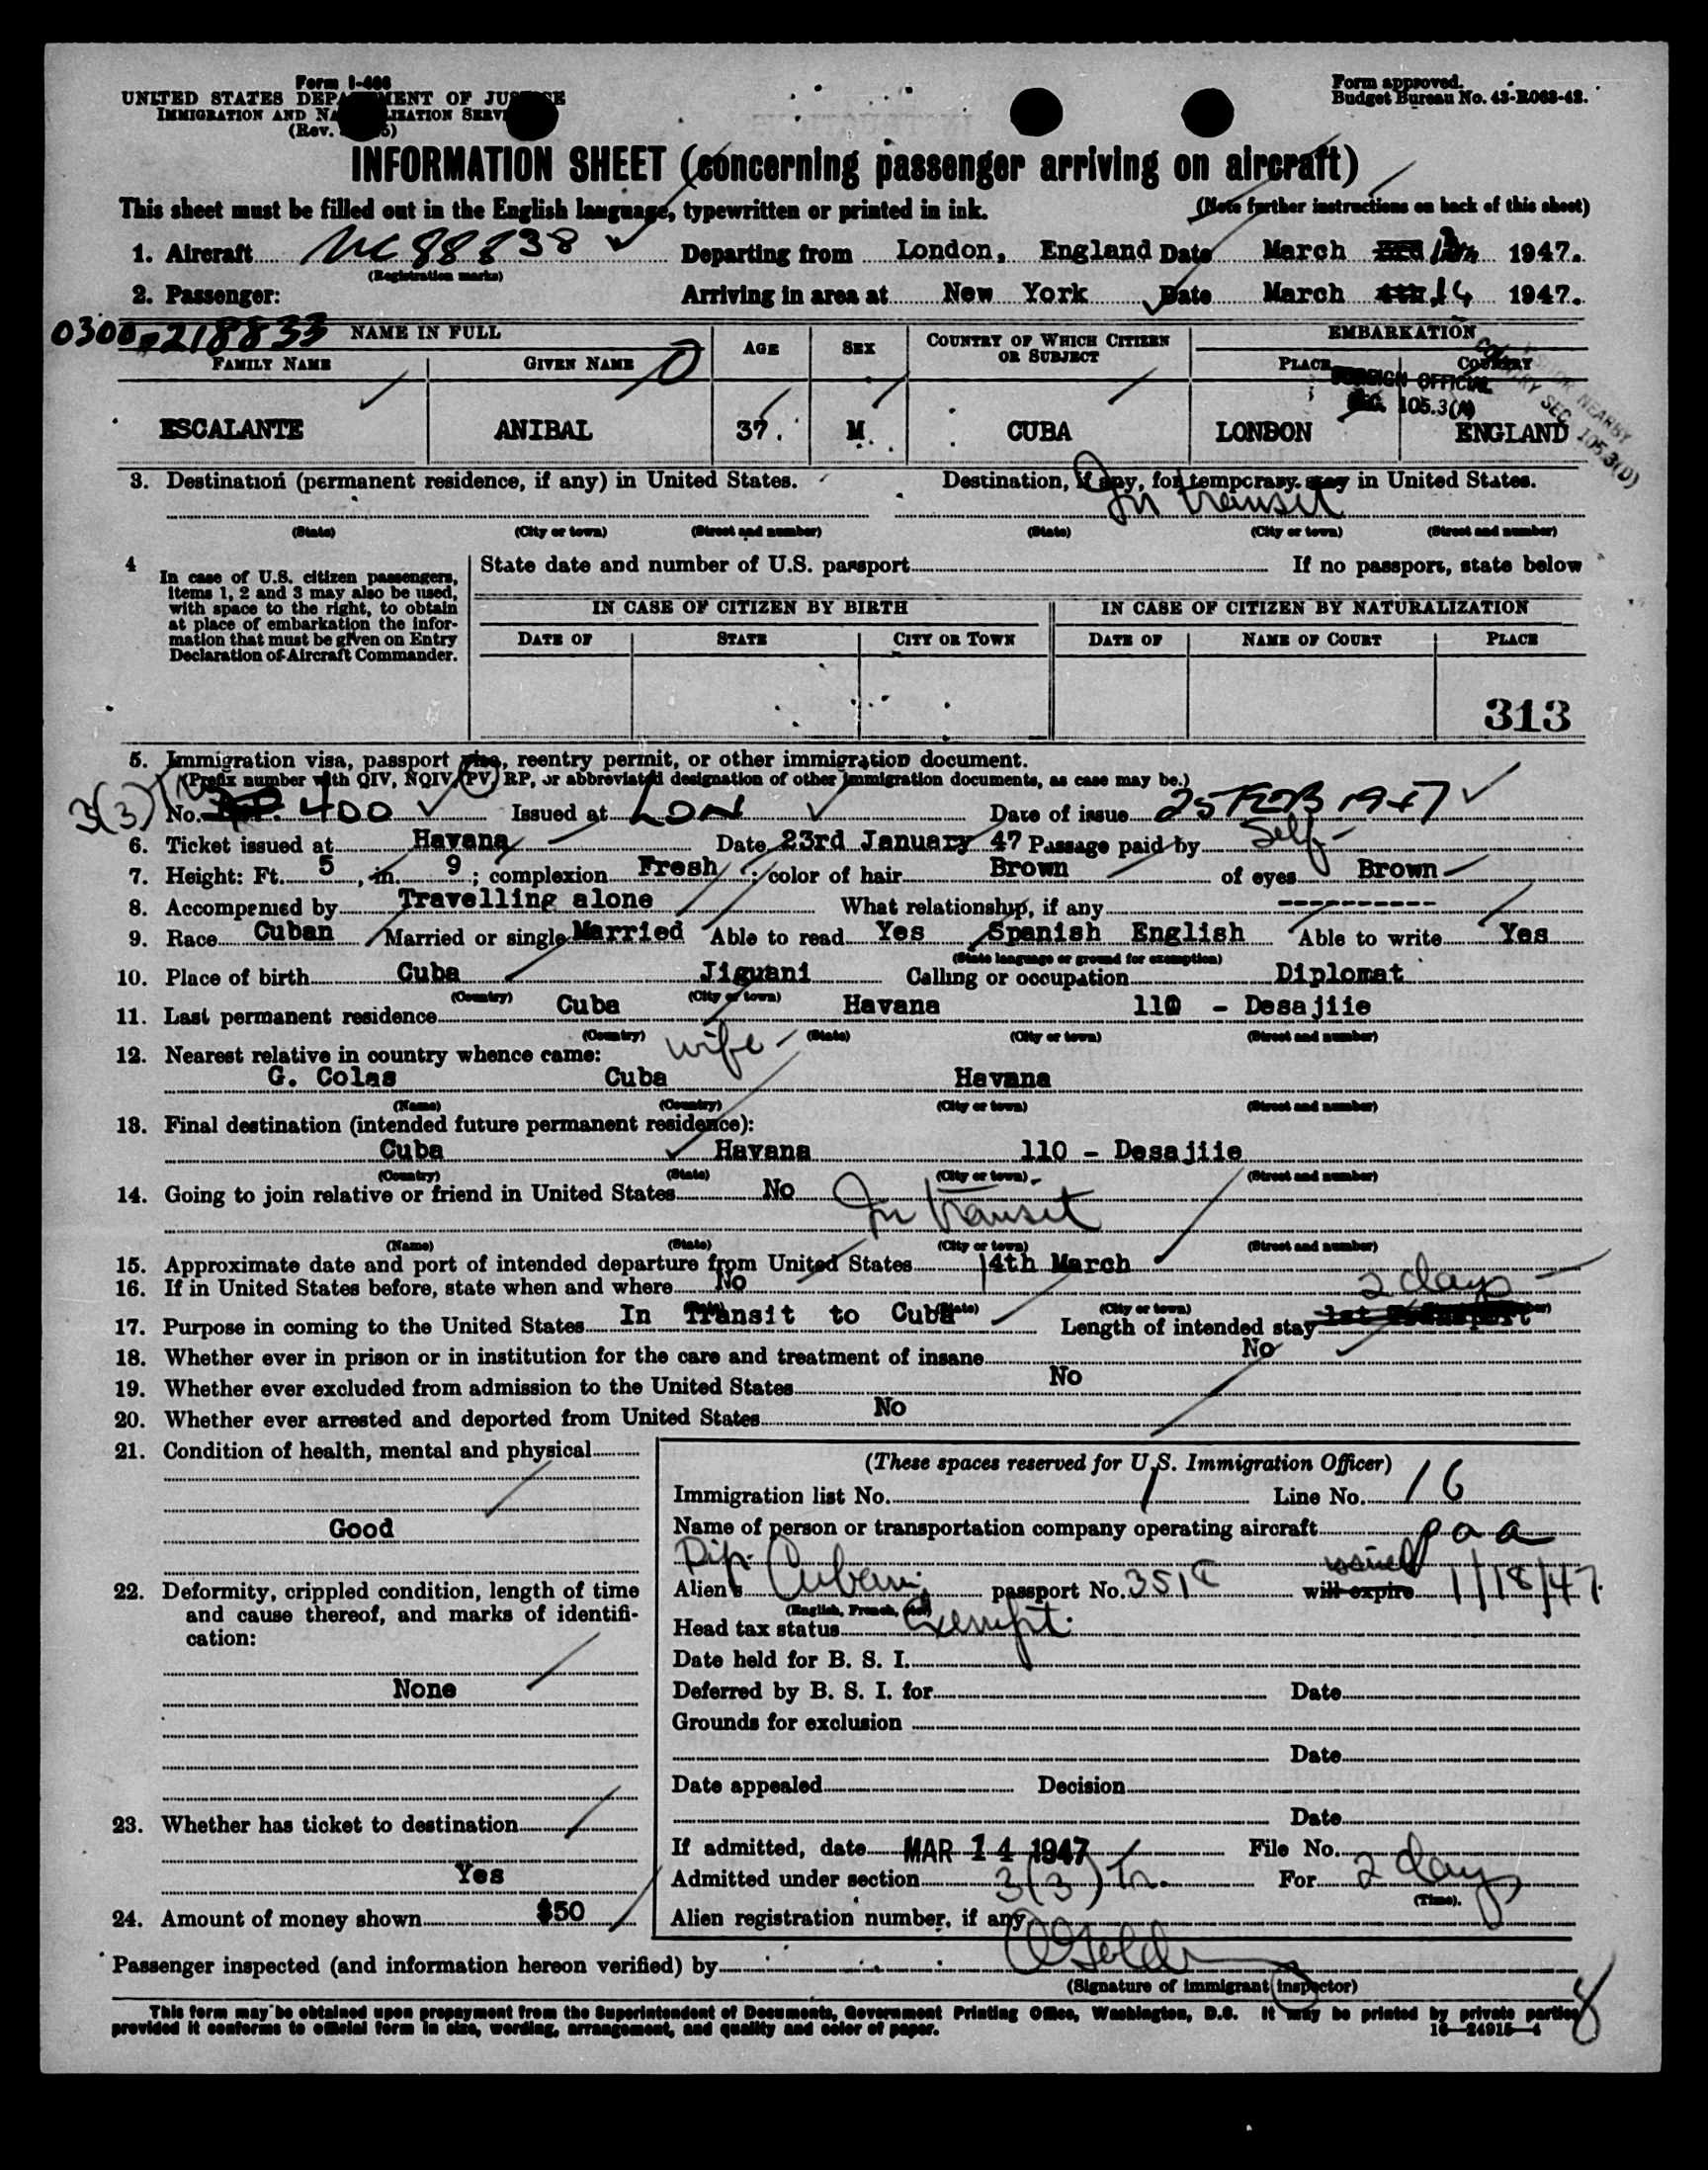 Form I-466
UNITED STATES DEPARTMENT OF JUSTICE
IMMIGRATION AND NATURALIZATION SERVICE
(Rev.
Form approved.
Budget Bureau No. 43-R063-42.
INFORMATION SHEET (concerning passenger arriving on aircraft)
This sheet must be filled out in the English language, typewritten or printed in ink. (Note further instructions on back of this sheet)
1. Aircraft NC 88838 Departing from London, England Date March 1947.
(Registration marks)
2. Passenger: Arriving in area at New York Date March 14 1947.
0300-218833 NAME IN FULL AGE SEX COUNTRY OF WHICH CITIZEN OR SUBJECT EMBARKATION
FAMILY NAME GIVEN NAME PLACE COUNTRY
FOREIGN OFFICIAL
105.3(A)
NEARBY
SEC 105.3(D)
ESCALANTE ANIBAL 37. M. CUBA LONDON ENGLAND
3. Destination (permanent residence, if any) in United States. Destination, if any, for temporary stay in United States.
In transit
(State) (City or town) (Street and number) (State) (City or town) (Street and number)
4 In case of U.S. citizen passengers, items 1, 2 and 3 may also be used, with space to the right, to obtain at place of embarkation the information that must be given on Entry Declaration of Aircraft Commander.
State date and number of U.S. passport If no passport, state below
IN CASE OF CITIZEN BY BIRTH IN CASE OF CITIZEN BY NATURALIZATION
DATE OF STATE CITY OR TOWN DATE OF NAME OF COURT PLACE
313
5. Immigration visa, passport visa, reentry permit, or other immigration document.
(Prefix number with QIV, NQIV, PV, RP, or abbreviated designation of other immigration documents, as case may be.)
3(3) No. 400 Issued at LON Date of issue 25 FEB 1947
6. Ticket issued at Havana Date 23rd January 47 Passage paid by Self
7. Height: Ft. 5, in. 9; complexion Fresh; color of hair Brown of eyes Brown
8. Accompanied by Travelling alone What relationship, if any ----------
9. Race Cuban Married or single Married Able to read Yes Spanish English Able to write Yes
(State language or ground for exemption)
10. Place of birth Cuba Jiguani Calling or occupation Diplomat
(Country) (City or town)
11. Last permanent residence Cuba Havana 110 - Desajiie
(Country) (State) (City or town) (Street and number)
12. Nearest relative in country whence came: wife
G. Colas Cuba Havana
(Name) (Country) (City or town) (Street and number)
13. Final destination (intended future permanent residence):
Cuba Havana 110 - Desajiie
(Country) (State) (City or town) (Street and number)
14. Going to join relative or friend in United States No In transit
(Name) (State) (City or town) (Street and number)
15. Approximate date and port of intended departure from United States 14th March
16. If in United States before, state when and where No 2 days
(State) (City or town)
17. Purpose in coming to the United States In Transit to Cuba Length of intended stay
18. Whether ever in prison or in institution for the care and treatment of insane No
19. Whether ever excluded from admission to the United States No
20. Whether ever arrested and deported from United States No
21. Condition of health, mental and physical
Good
22. Deformity, crippled condition, length of time and cause thereof, and marks of identification:
None
23. Whether has ticket to destination
Yes
24. Amount of money shown $50
(These spaces reserved for U.S. Immigration Officer)
Immigration list No. 1 Line No. 16
Name of person or transportation company operating aircraft p a a
Dip.
Alien's Cuban passport No. 3518 will expire issued 1/18/47.
(English, French, etc.)
Head tax status Exempt
Date held for B. S. I.
Deferred by B. S. I. for Date
Grounds for exclusion
Date
Date appealed Decision
Date
If admitted, date MAR 14 1947 File No.
Admitted under section 3(3) Tr. For 2 days
(Time).
Alien registration number, if any
Passenger inspected (and information hereon verified) by
(Signature of immigrant inspector)
This form may be obtained upon prepayment from the Superintendent of Documents, Government Printing Office, Washington, D.C. It may be printed by private parties
provided it conforms to official form in size, wording, arrangement, and quality and color of paper. 16—24915-1
8